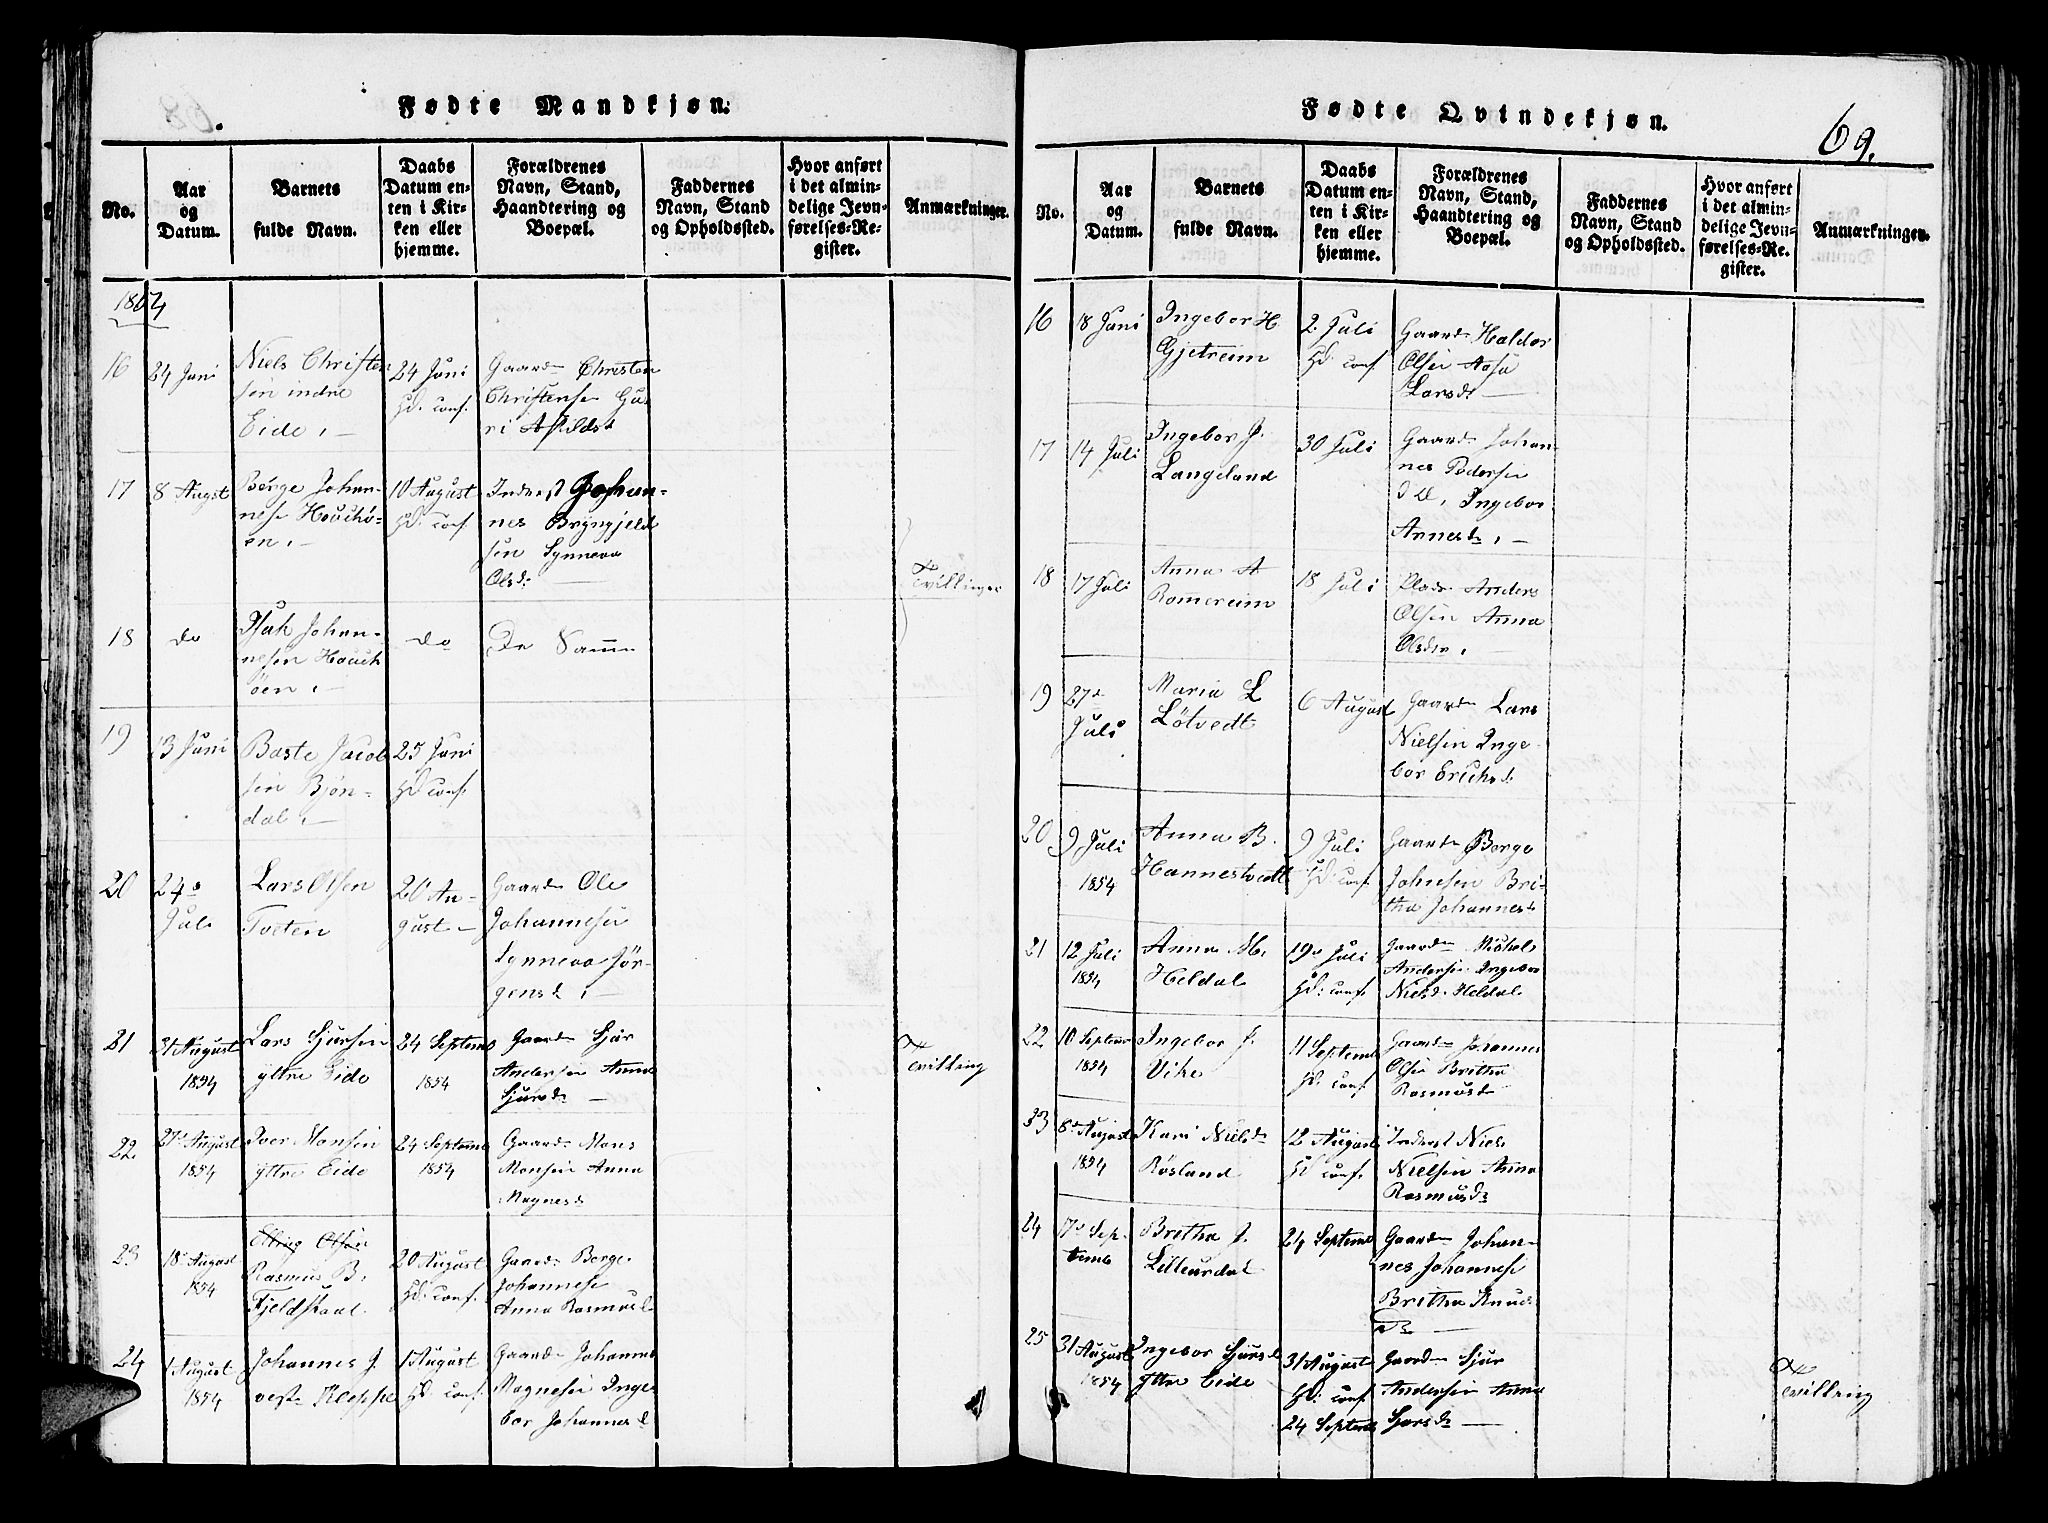 Fødte Mandkjøn.
No.
Aar
og
Datum.
Barnets
fulde Navn.
Daabs
Datum en-
ten i Kir-
ken eller
hjemme.
Forældrenes
Navn, Stand,
Haandtering og
Boepæl.
Faddernes
Navn, Stand
og Opholdssted.
Hvor anført
i det almin-
delige Jevn-
førelses-Re-
gister.
Anmærkninger.
16
24 Juni
Niels Christen
sen indre
Eide. –
24 Juni
Hd: conf.
Gaardm Christen
Christensen Gu-
ri Asfildsd
17
8 Augst
Børge Johan-
nese
10 August
Hd: conf.
Inderst Johan-
nes Bryngjeld
sen Synneva
Olsd:
Tvillinger
18
do
Isak Johan-
nesen Houck
öen. –
do
De Samme
19
13 Juni
Baste Jacob
sen Bjön-
dal. –
25 Juni
Hd conf.
20
24de
Juli
Lars Olsen
Tveten
20 Au-
gust –
Gaardm Ole
Johannesen
Synneva Jör-
gensd. –
21
31 August
1854
Lars Sjursen
yttre Eide
24 Septemb
1854
Gaardm Sjur
Andersen Anna
Sjursd –
Tvilling
22
27de August
1854
Iver Monsen
yttre Eide
24 Septemb
1854
Gaardm Mons
Monsen Anna
Magnesd
23
18 August
1854
Elling Olsen
Rasmus B.
Fjeldstaal.
20 August
Hd: conf.
Gaardm Børge
Johannese
Anna Rasmusd
24
1 August
1854
Johannes J.
vestre Kleppe
1 August
Hd conf.
Gaardm Johannes
Magnesen Inge
bor Johannesd
Fødte Qvindekjøn.
69.
No.
Aar
og
Datum.
Barnets
fulde Navn.
Daabs
Datum en-
ten i Kir-
ken eller
hjemme.
Forældrenes
Navn, Stand,
Haandtering og
Boepæl.
Faddernes
Navn, Stand
og Opholdssted.
Hvor anført
i det almin-
delige Jevn-
førelses-Re-
gister.
Anmærkninger.
16
18 Juni
Ingebor H
Gjetreim
2. Juli
Hd: conf.
Gaardm Haldor
Olsen Aasa
Larsd: –
17
14 Juli
Ingebor J.
Langeland
30 Juli
Gaardm Johan
nes Pedersen
Ingebor
Arnesd. –
18
17 Juli
Anna A
Romereim
18 Juli
Anders
Olsen Anna
Olsdtr.
19
27de
Juli
Maria L
Lötvedt
6 August
Gaardm Lars
Nielsen Inge-
bor Erichsd:
20
9 Juli
1854
Anna B.
Hannestvedt
9 Juli
Hd: conf.
Gaardm Børge
Johnesen Bri-
tha Johannesd
21
12 Juli
1854
Anna M.
Heldal
19de Juli
Hd: conf.
Gaardm Mikhel
Andersen Ingebor
Nielsd. Heldal.
22
10 Septemb
1854
Ingebor J.
Vike
11 Septemb
Hd: conf.
Gaardm Johannes
Olsen Britha
Rasmusd
23
8de August
1854
Kari Nielsd
Rösland
12 August
Hd conf.
Inderst Niels
Nielsen Anna
Rasmusd:
24
17de Sep-
temb
Britha J.
Lilleurdal
24 Septemb
Gaardm Johan-
nes Johannese
Britha Knuds
25
31 August
1854
Ingebor Sjursd
yttre Eide
31 August
Hd: conf.
24 Septemb
Gaardm Sjur
Andersen Anna
Sjursd –
Tvilling